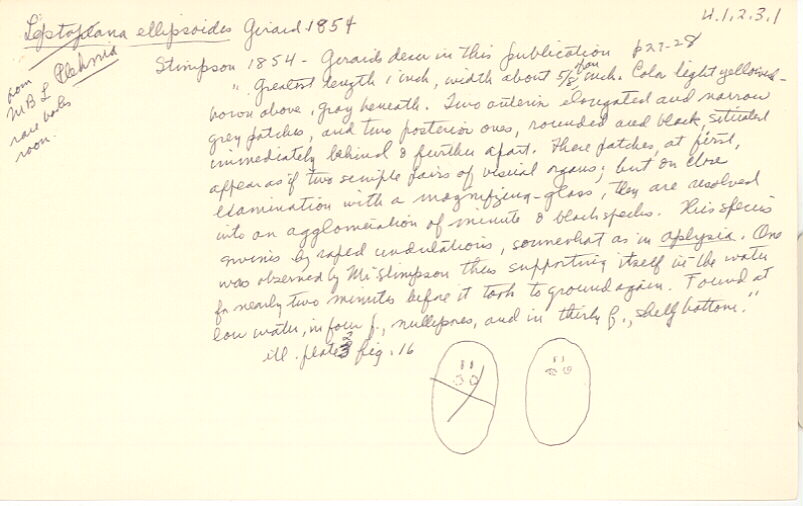 Leptoplana ellipsoides Girard 1854
4.1.2.3.1
from
MBL
rare books
room.
Stimpson 1854 - Girards descr in this publication p27-28
"Greatest length 1 inch, width about 5/8 of an inch. Color light yellowish-
brown above, gray beneath. Two anterior elongated and narrow
grey patches, and two posterior ones, rounded and black, situated
immediately behind & further apart. These patches, at first,
appear as if two simple pairs of visual organs; but on close
examination with a magnifying-glass, they are resolved
into an agglomeration of minute & black specks. This species
swims by rapid undulations, somewhat as in aplysia. One
was observed by Mr Stimpson thus supporting itself in the water
for nearly two minutes before it took to ground again. Found at
low water, in four f., nullipores, and in thirty f., shelly bottom."
ill. plate 2 fig. 16